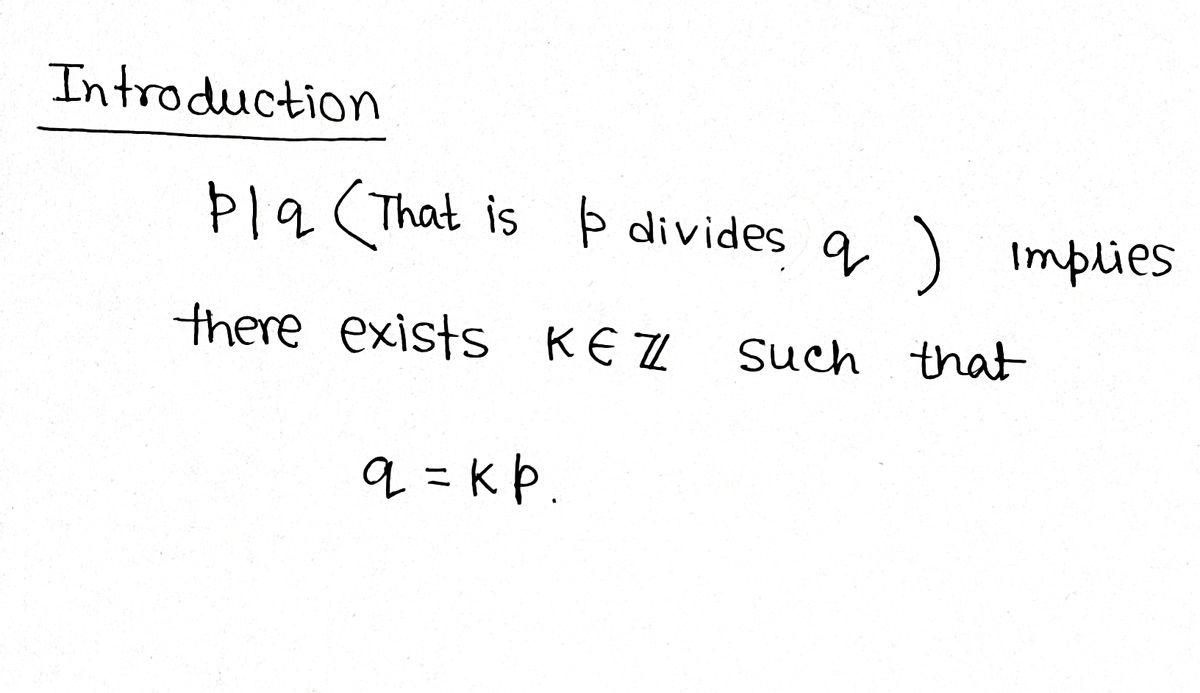 Introduction
p|q (That is p divides q) implies
there exists K∈ℤ such that
q = Kp.